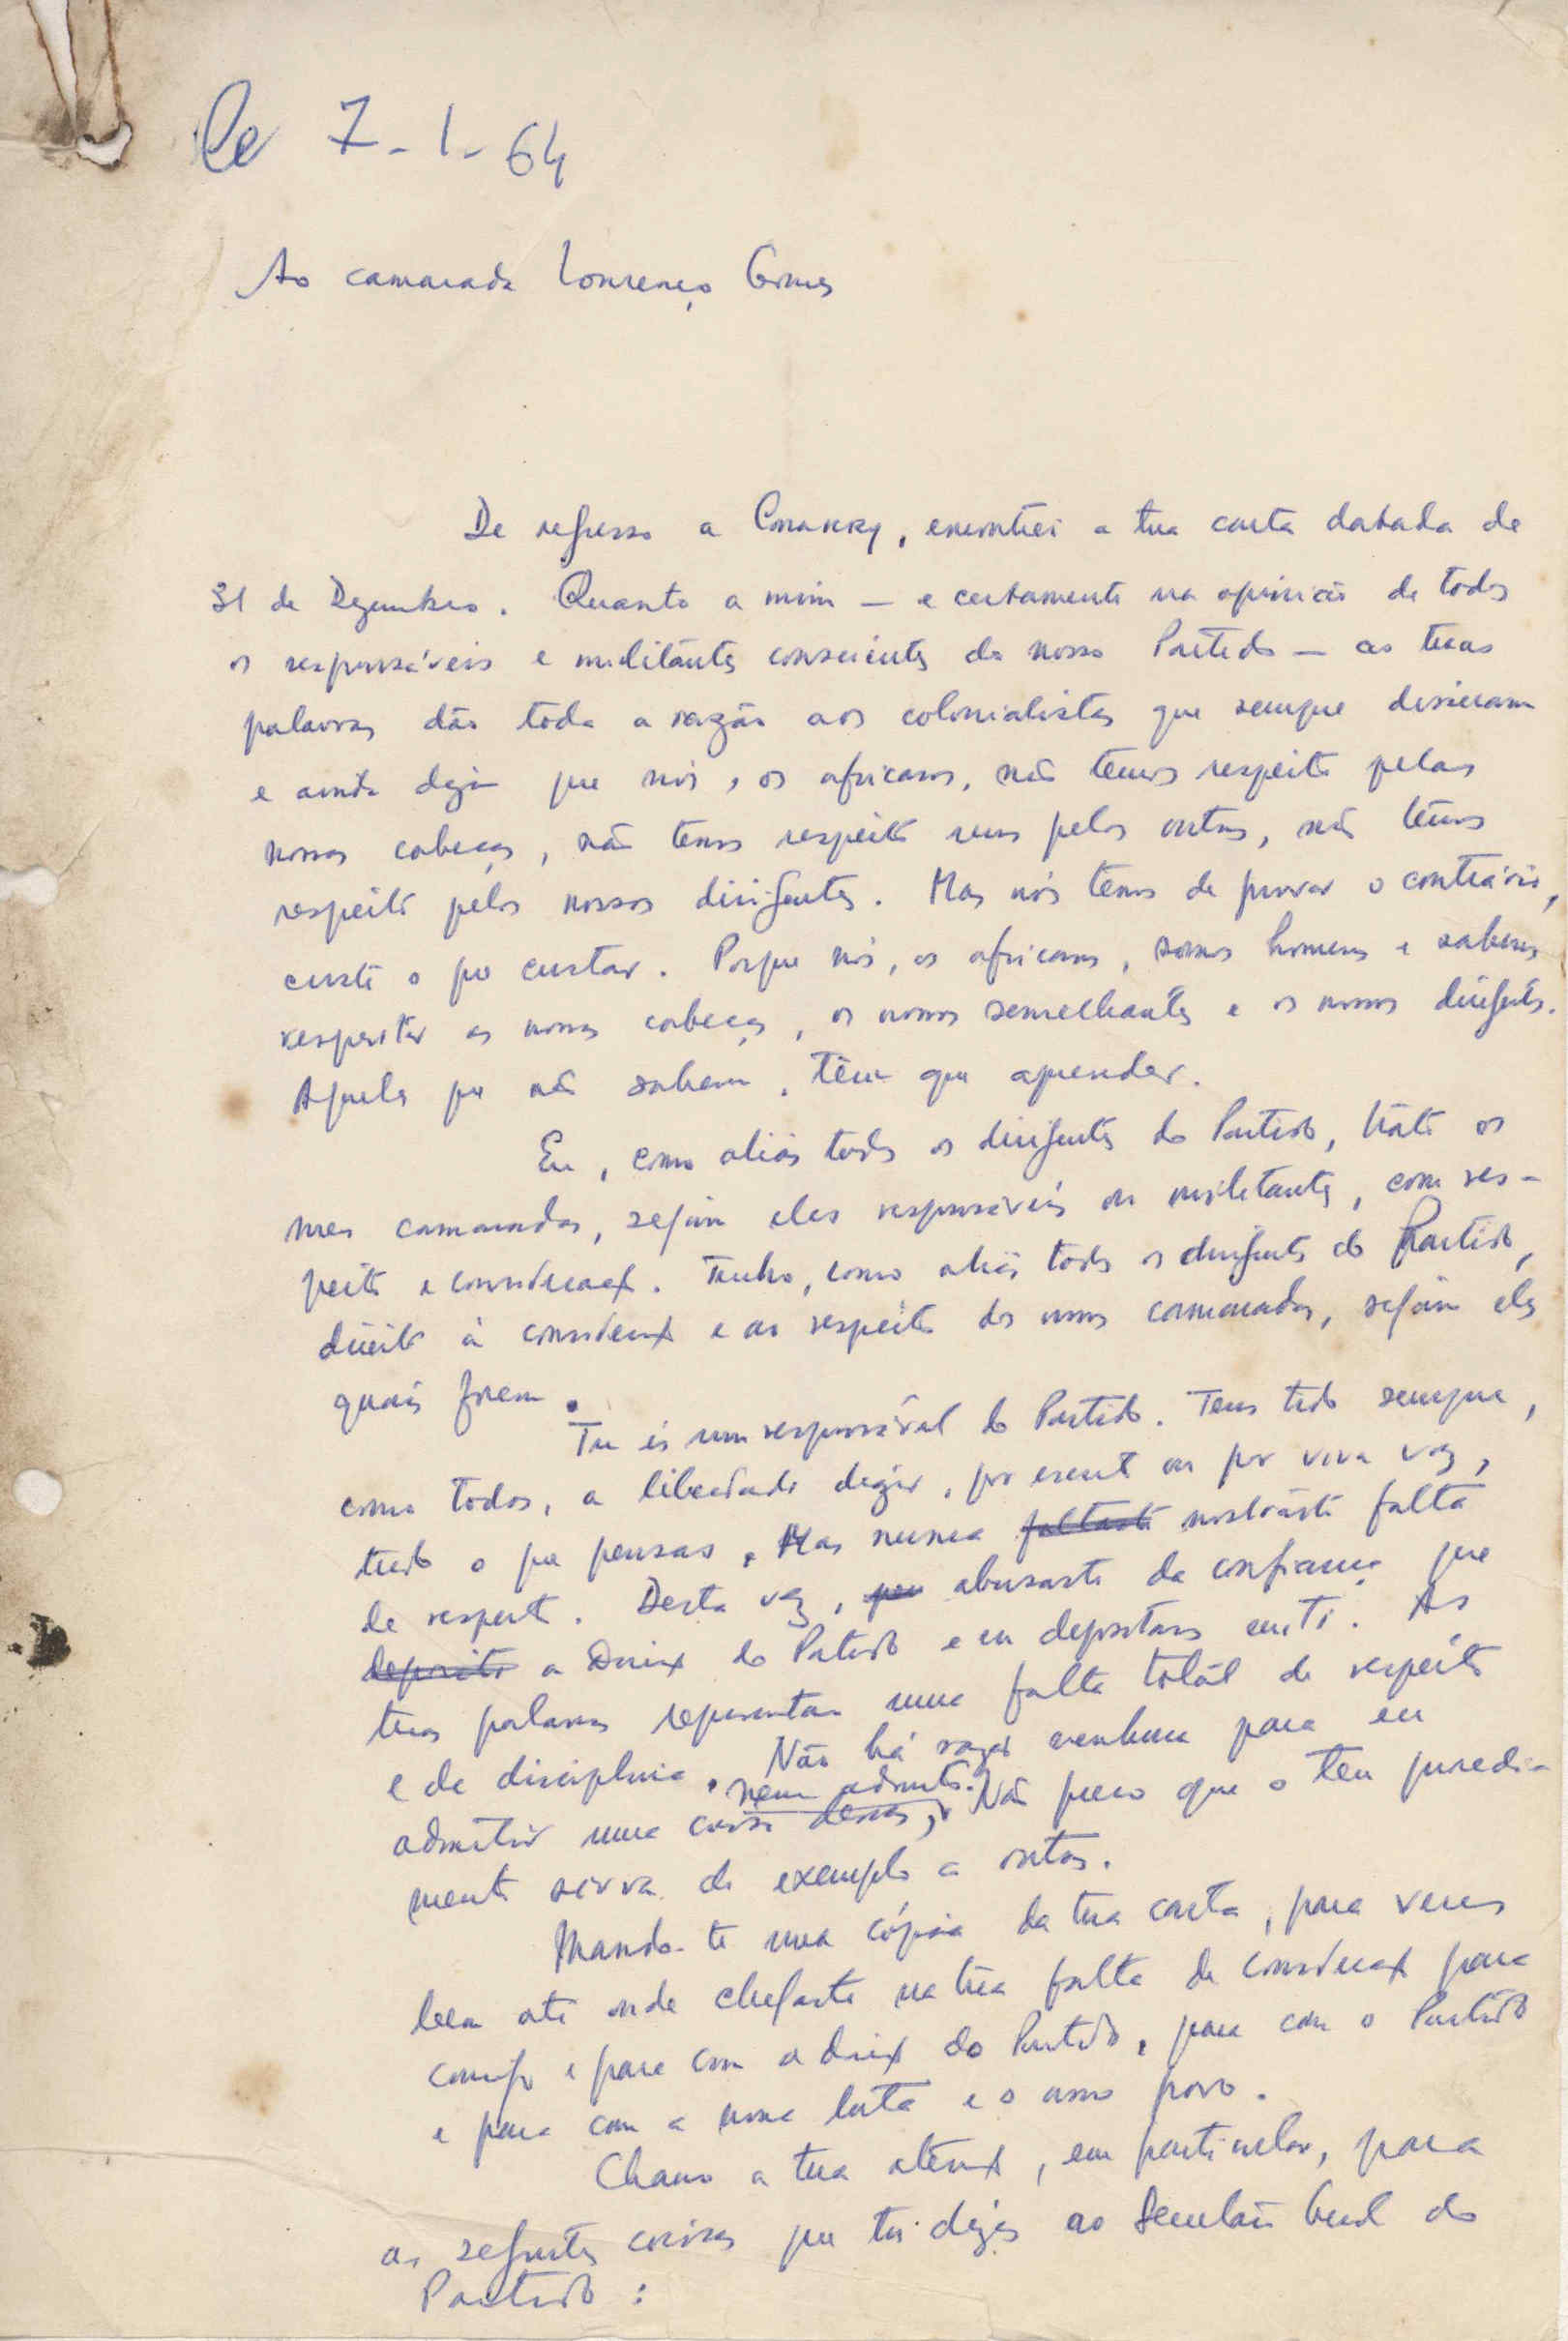 le 7-1-64
Ao camarada Lourenço Gomes
De regresso a Conakry, encontrei a tua carta datada de
31 de Dezembro. Quanto a mim — e certamente na opinião de todos
os responsáveis e militantes conscientes do nosso Partido — as tuas
palavras dão toda a razão aos colonialistas que sempre disseram
e ainda dizem que nós, os africanos, não temos respeito pelas
nossas cabeças, não temos respeito uns pelos outros, não temos
respeito pelos nossos dirigentes. Mas nós temos de provar o contrário,
custe o que custar. Porque nós, os africanos, somos homens e sabemos
respeitar as nossas cabeças, os nossos semelhantes e os nossos dirigentes.
Aqueles que não sabem, têm que aprender.
Eu, como aliás todos os dirigentes do Partido, trato os
meus camaradas, sejam eles responsáveis ou militantes, com res-
peito e consideração. Tenho, como aliás todos os dirigentes do Partido,
direito à consideração e ao respeito dos meus camaradas, sejam eles
quais forem.
Tu és um responsável do Partido. Tens tido sempre,
como todos, a liberdade dizer, por escrito ou por viva voz,
tudo o que pensas. Mas nunca faltaste mostraste falta
de respeito. Desta vez, que abusaste da confiança que
deposito a Direcção do Partido e eu depositamos em ti. As
tuas palavras representam uma falta total de respeito
e de disciplina. Não há razão nenhuma para eu
admitir uma coisa dessas, nem admito. Não quero que o teu procedi-
mento sirva de exemplo a outros.
Mando-te uma cópia da tua carta, para veres
bem até onde chegaste na tua falta de consideração para
comigo e para com a direcção do Partido, para com o Partido
e para com a nossa luta e o nosso povo.
Chamo a tua atenção, em particular, para
as seguintes coisas que tu dizes ao Secretário Geral do
Partido: